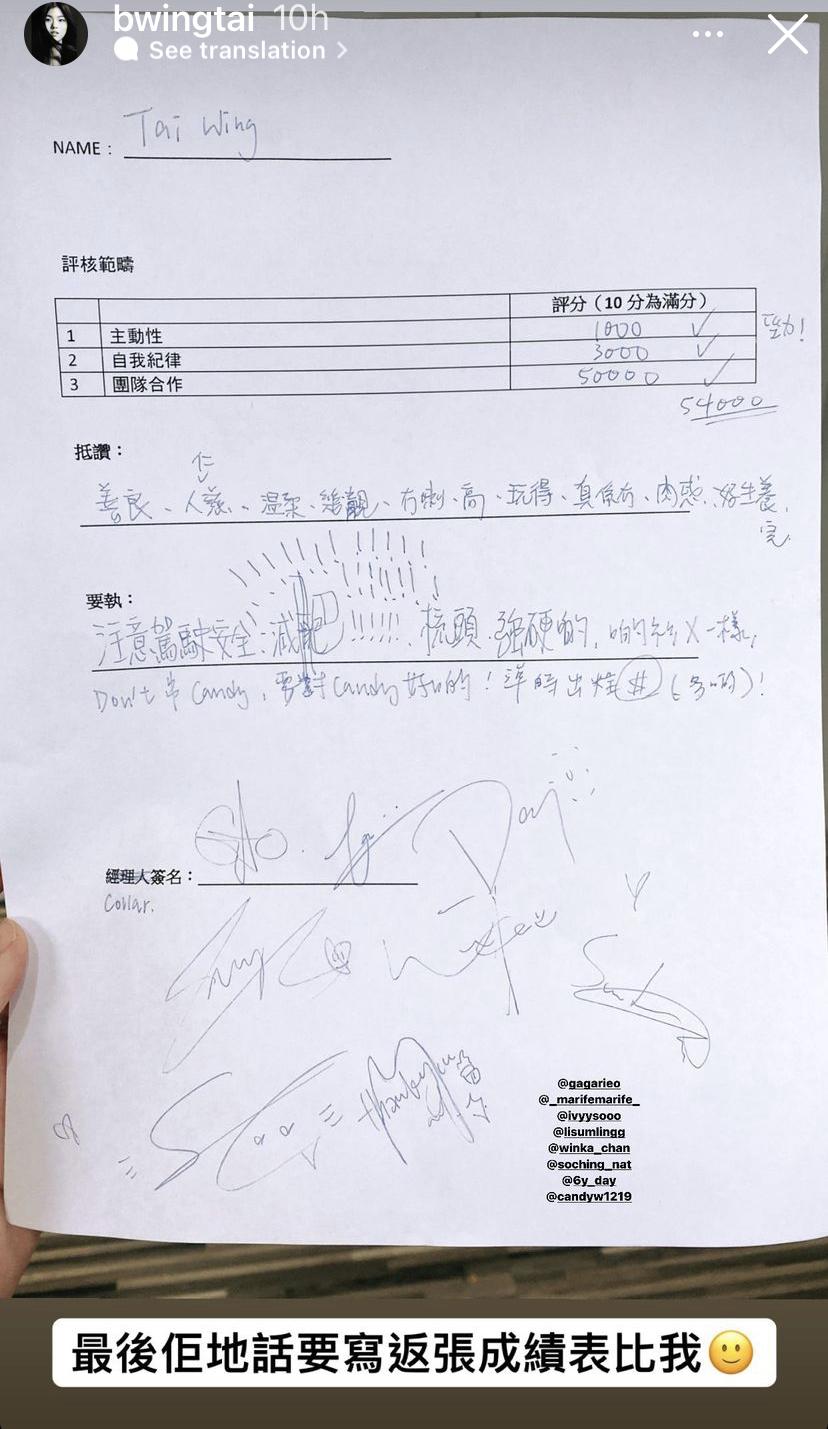 bwingtai 10h
See translation
NAME： Tai Wing
評核範疇
評分（10 分為滿分）
1 主動性 1000 ✓
2 自我紀律 3000 ✓
3 團隊合作 50000 ✓
54000
抵讚：
仁
善良、人慈、溫柔、
冇喇、高、玩得、真係冇、肉感、好生養,
要執：
注意駕駛安全 減肥 !!!!!! 梳頭 強硬啲,
一樣,
Don't 串 Candy, 要對 Candy 好啲! 準時出糧
經理人簽名：
Collar.
thankyou
@gagarieo
@_marifemarife_
@ivyysooo
@lisumlingg
@winka_chan
@soching_nat
@6y_day
@candyw1219
最後佢地話要寫返張成績表比我🙂